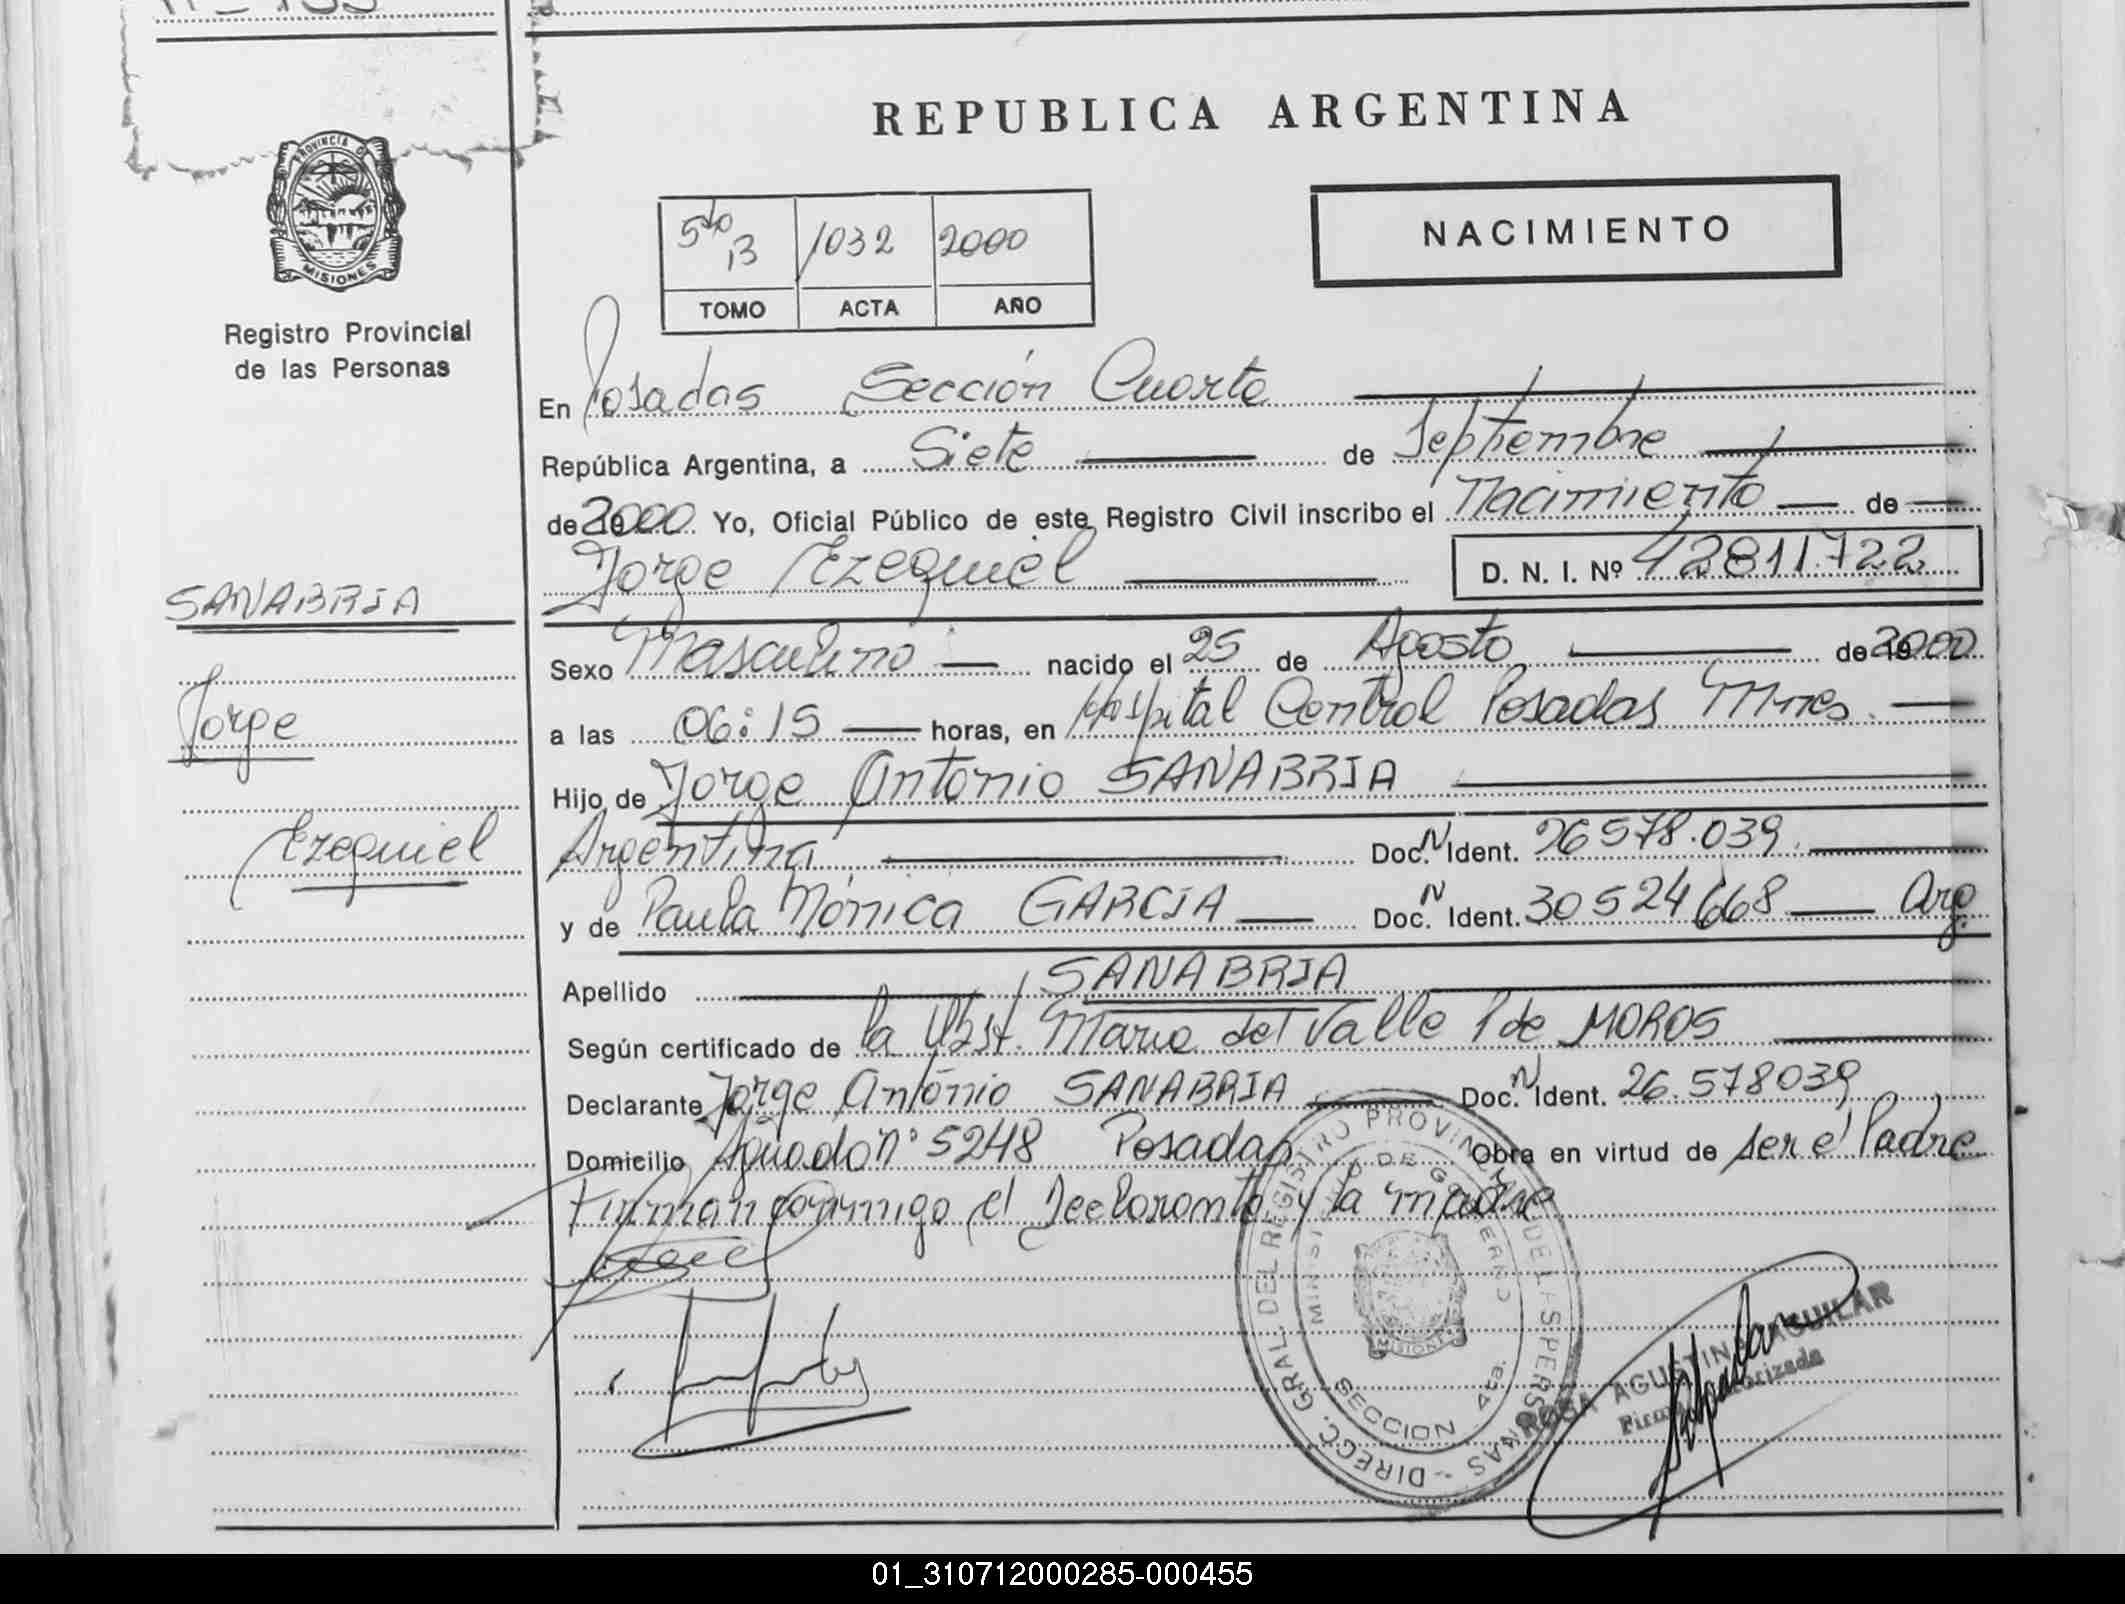 REPUBLICA ARGENTINA
PROVINCIA D
MISIONES
Registro Provincial
de las Personas
5to B 1032 2000
TOMO ACTA AÑO
NACIMIENTO
En Posadas Sección Cuarta
República Argentina, a Siete de Septiembre
de 2000 Yo, Oficial Público de este Registro Civil inscribo el Nacimiento de
Jorge Ezequiel D. N. I. Nº 42811.722
SANABRIA
Jorge
Ezequiel
Sexo Masculino nacido el 25 de Agosto de 2000
a las 06:15 horas, en Hospital Central Posadas Mnes.
Hijo de Jorge Antonio SANABRIA
Argentina Doc. N Ident. 26578.039
y de Paula Mónica GARCIA Doc. N Ident. 30524668 Arg.
Apellido SANABRIA
Según certificado de la Obst. Maria del Valle P de MOROS
Declarante Jorge Antonio SANABRIA Doc. N Ident. 26.578039
Domicilio Aguado nº 5248 Posadas Obra en virtud de ser el Padre
Firman conmigo el Declarante y la madre
DIRECC. GRAL. DEL REGISTRO PROVINCIAL DE LAS PERSONAS
MINISTERIO DE GOBIERNO
MISIONES
SECCION 4ta.
ROSA AGUSTINA AGUILAR
Firma Autorizada
01_310712000285-000455